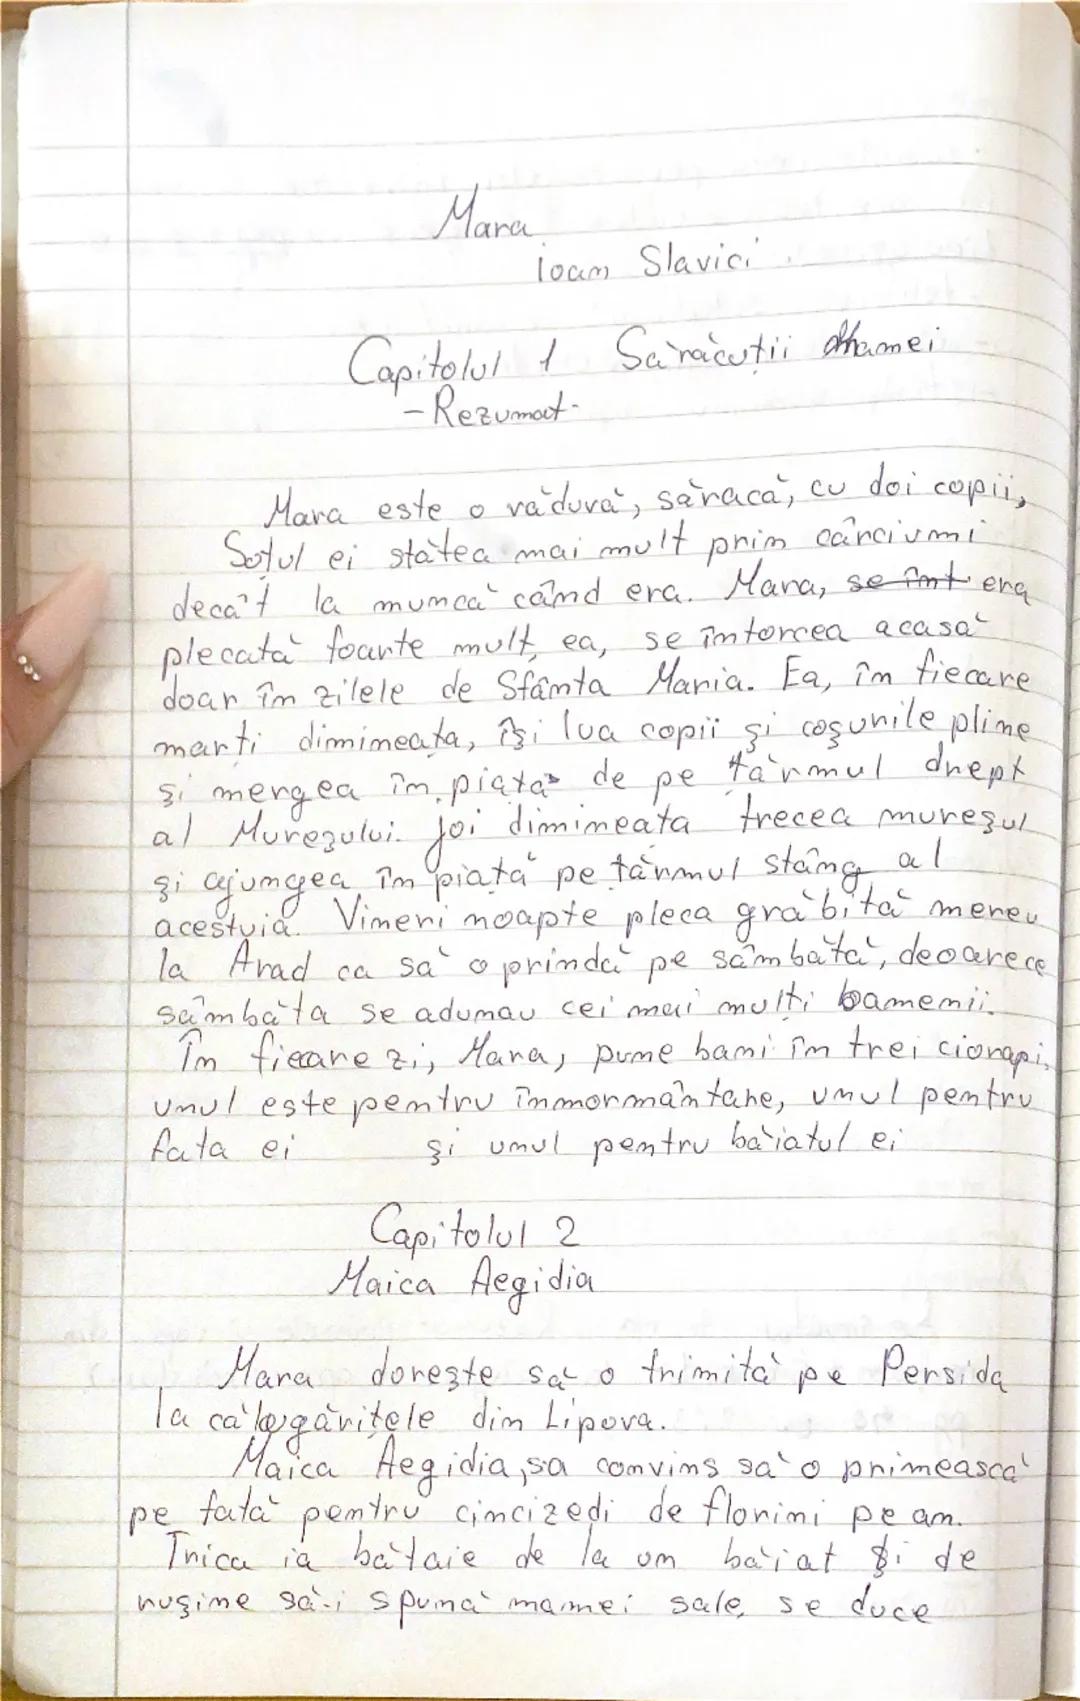 Mara
Ioan Slavici
Capitolul 1 Sărăcuții mamei
-Rezumat-
Mara este o văduvă, săracă, cu doi copii,
Soțul ei stătea mai mult prin cârciumi
decât la muncă când era. Mara, se înt era
plecată foarte mult, ea, se întorcea acasă
doar în zilele de Sfânta Maria. Ea, în fiecare
marți dimineața, își lua copii și coșurile pline
și mergea în piața de pe țărmul drept
al Mureșului. Joi dimineata trecea mureșul
și ajungea în piață pe țărmul stâng al
acestuia. Vineri noapte pleca grăbită mereu
la Arad ca să o prindă pe sâmbătă, deoarece
sâmbăta se adunau cei mai mulți oamenii.
În fiecare zi, Mara, pune bani în trei ciorapi,
unul este pentru înmormântare, unul pentru
fata ei și unul pentru băiatul ei
Capitolul 2
Maica Aegidia
Mara dorește să o trimită pe Persida
la călugărițele din Lipova.
Maica Aegidia, sa convins să o primească
pe fată pentru cincizedi de florini pe an.
Trica ia bătaie de la un băiat și de
rușine să-i spună mamei sale, se duce